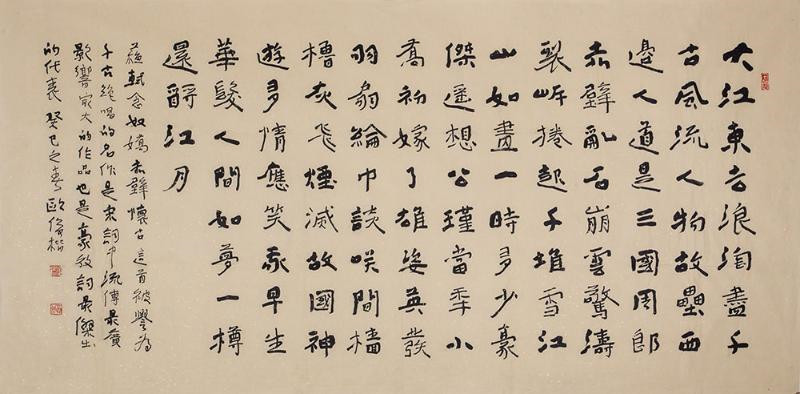 大江東去浪淘盡千
古風流人物故壘西
邊人道是三國周郎
赤壁亂石崩雲驚濤
裂岸捲起千堆雪江
山如畫一時多少豪
傑遥想公瑾當秊小
喬初嫁了雄姿英發
羽扇綸巾談咲間檣
櫓灰飛煙滅故國神
遊多情應笑我早生
華髮人間如夢一樽
還酹江月
蘇軾念奴嬌赤壁懷古這首被譽為
千古絕唱的名作是宋詞中流傳最廣
影響最大的作品也是豪放詞最傑出
的代表癸巳之春歐